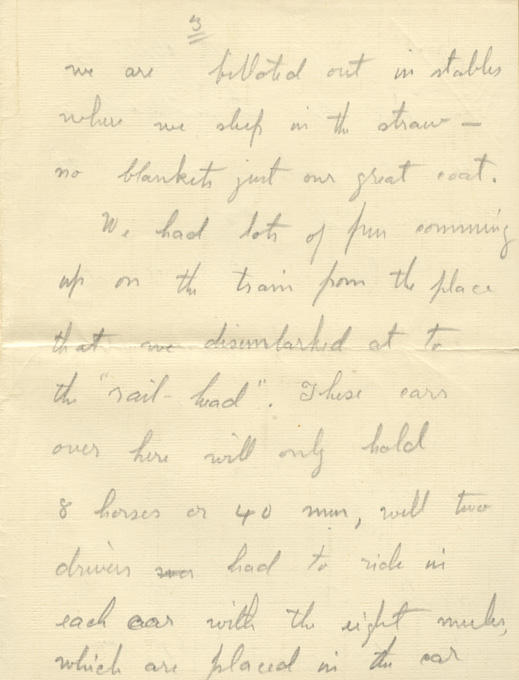 3
we are billoted out in stables
where we sleep in the straw —
no blankets just our great coat.
We had lots of fun comming
up on the train from the place
that we disembarked at to
the "rail-head". These cars
over here will only hold
8 horses or 40 men, well two
drivers had to ride in
each car with the eight mules,
which are placed in the car